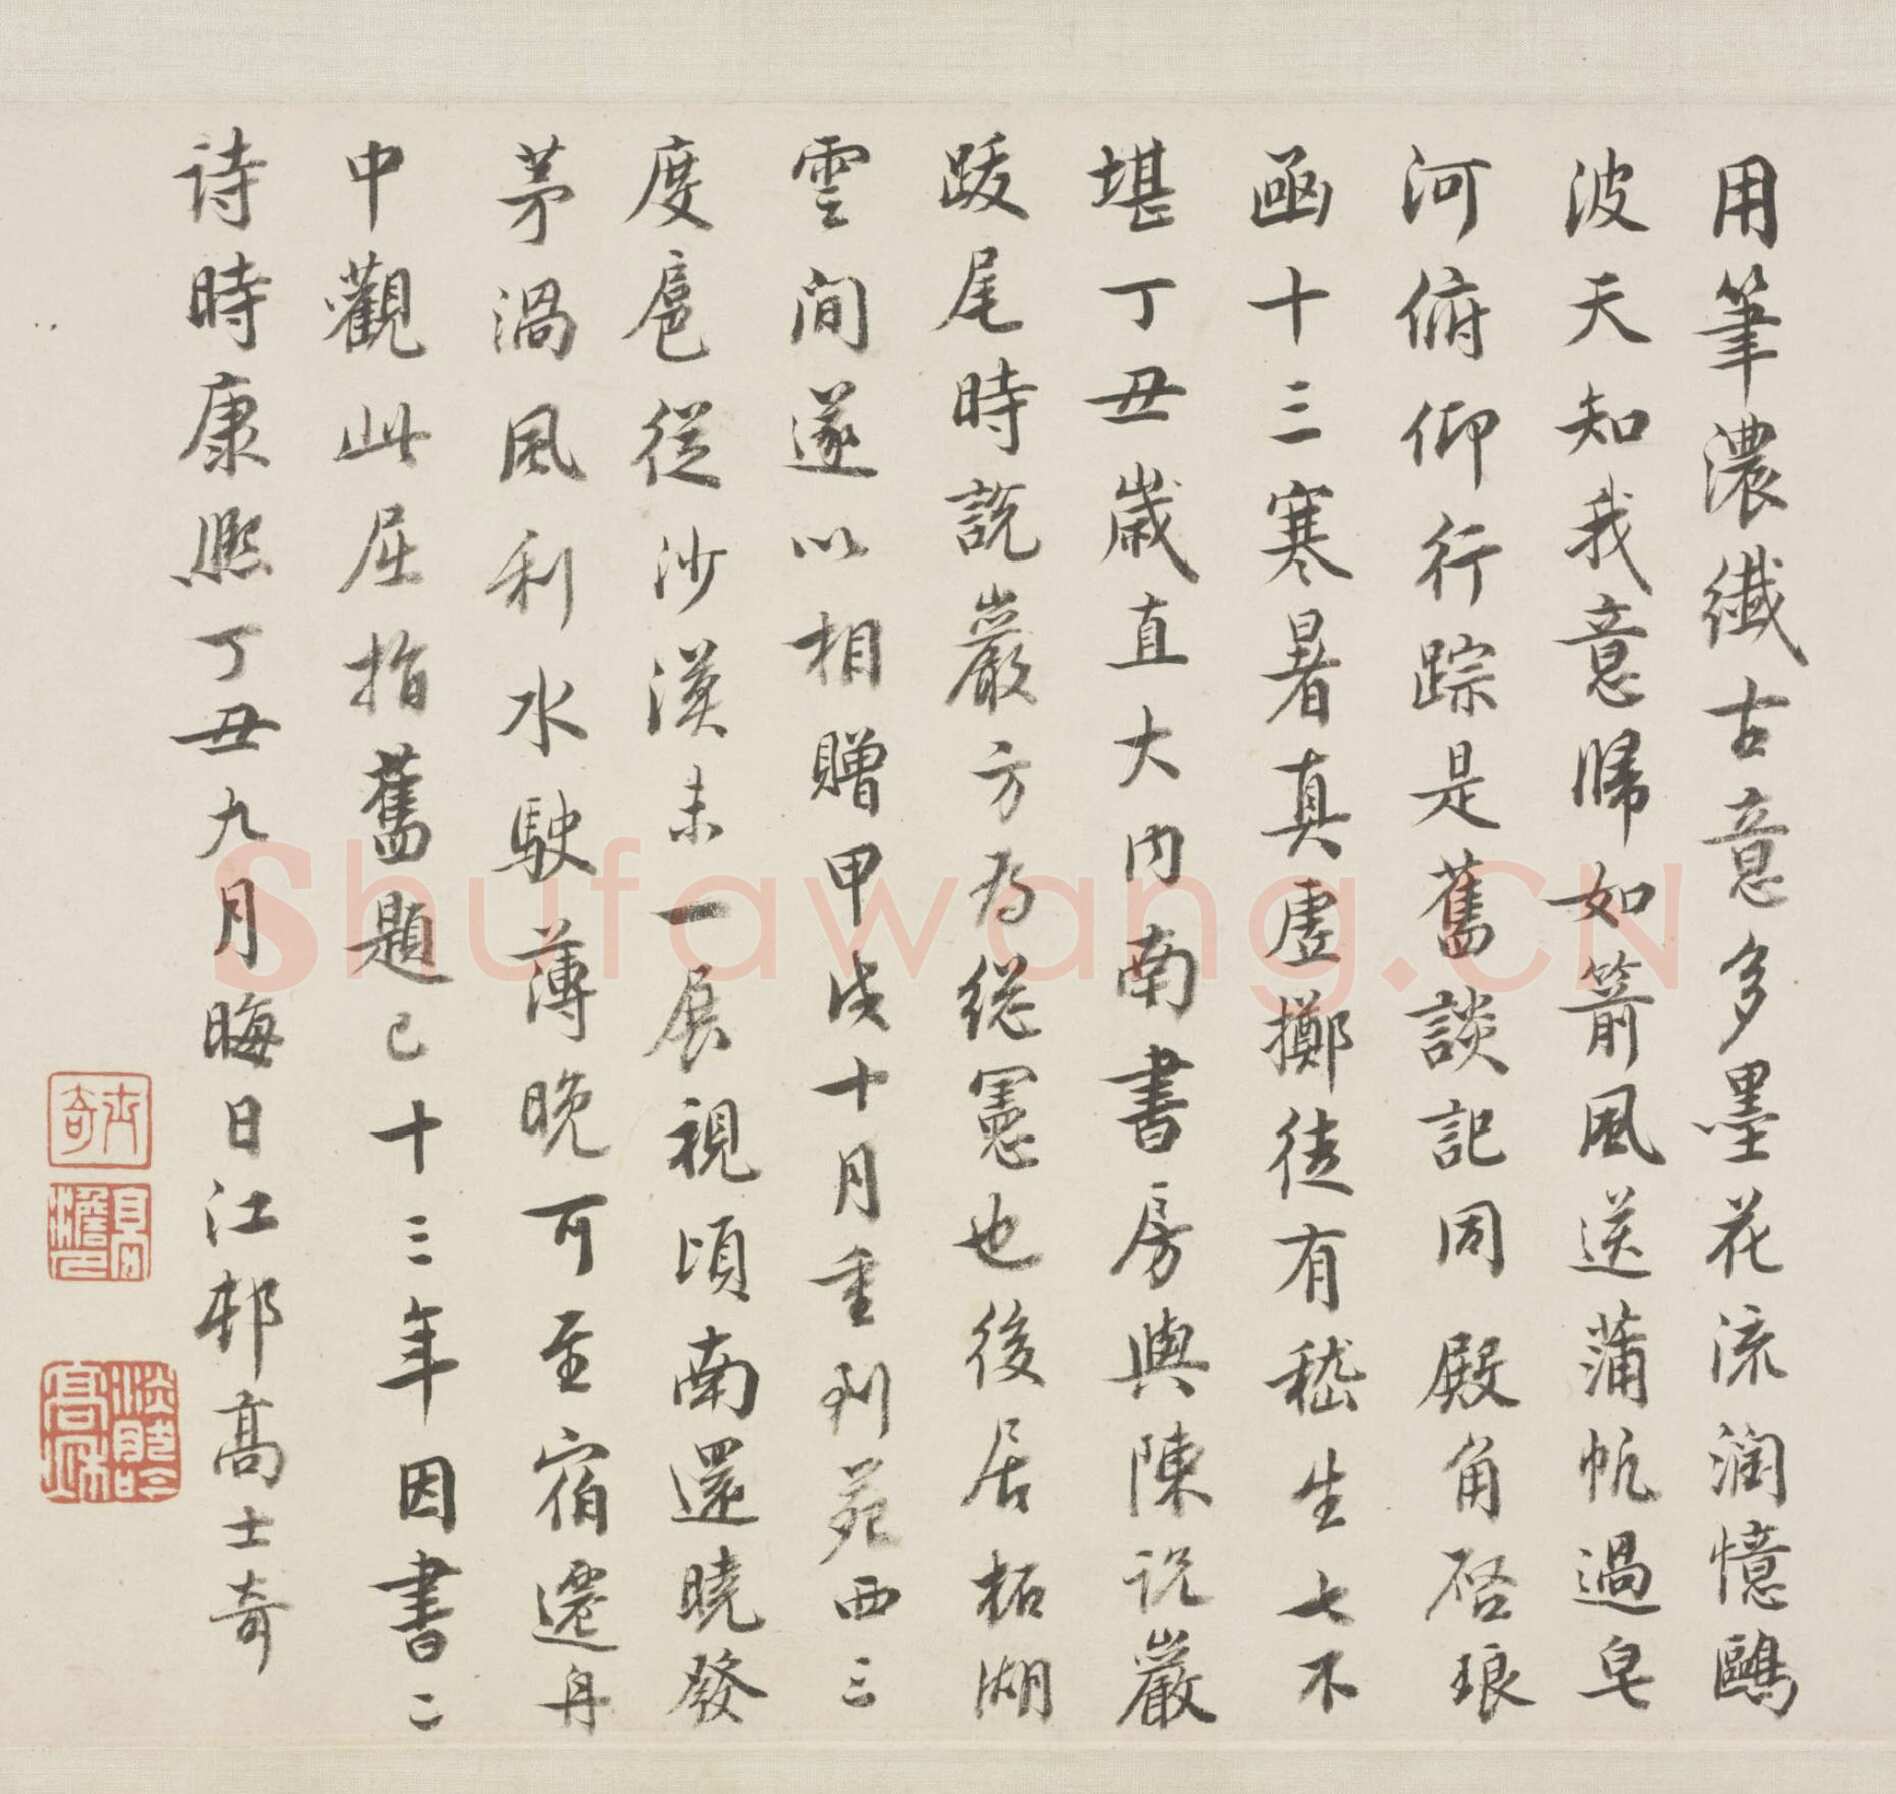 用筆濃纖古意多墨花流潤憶鷗
波天知我意歸如箭風送蒲帆過皂
河俯仰行踪是舊談記同殿角啓琅
函十三寒暑真虛擲徒有嵇生七不
堪丁丑歲直大內南書房與陳說巖
跋尾時說巖方為總憲也後居柘湖
雲間遂以相贈甲戌十月重到苑西三
度扈從沙漠未一展視頃南還曉發
茅渦風利水駛薄晚可至宿遷舟
中觀此屈指舊題已十三年因書二
詩時康熙丁丑九月晦日江邨高士奇
Shufawang.CN